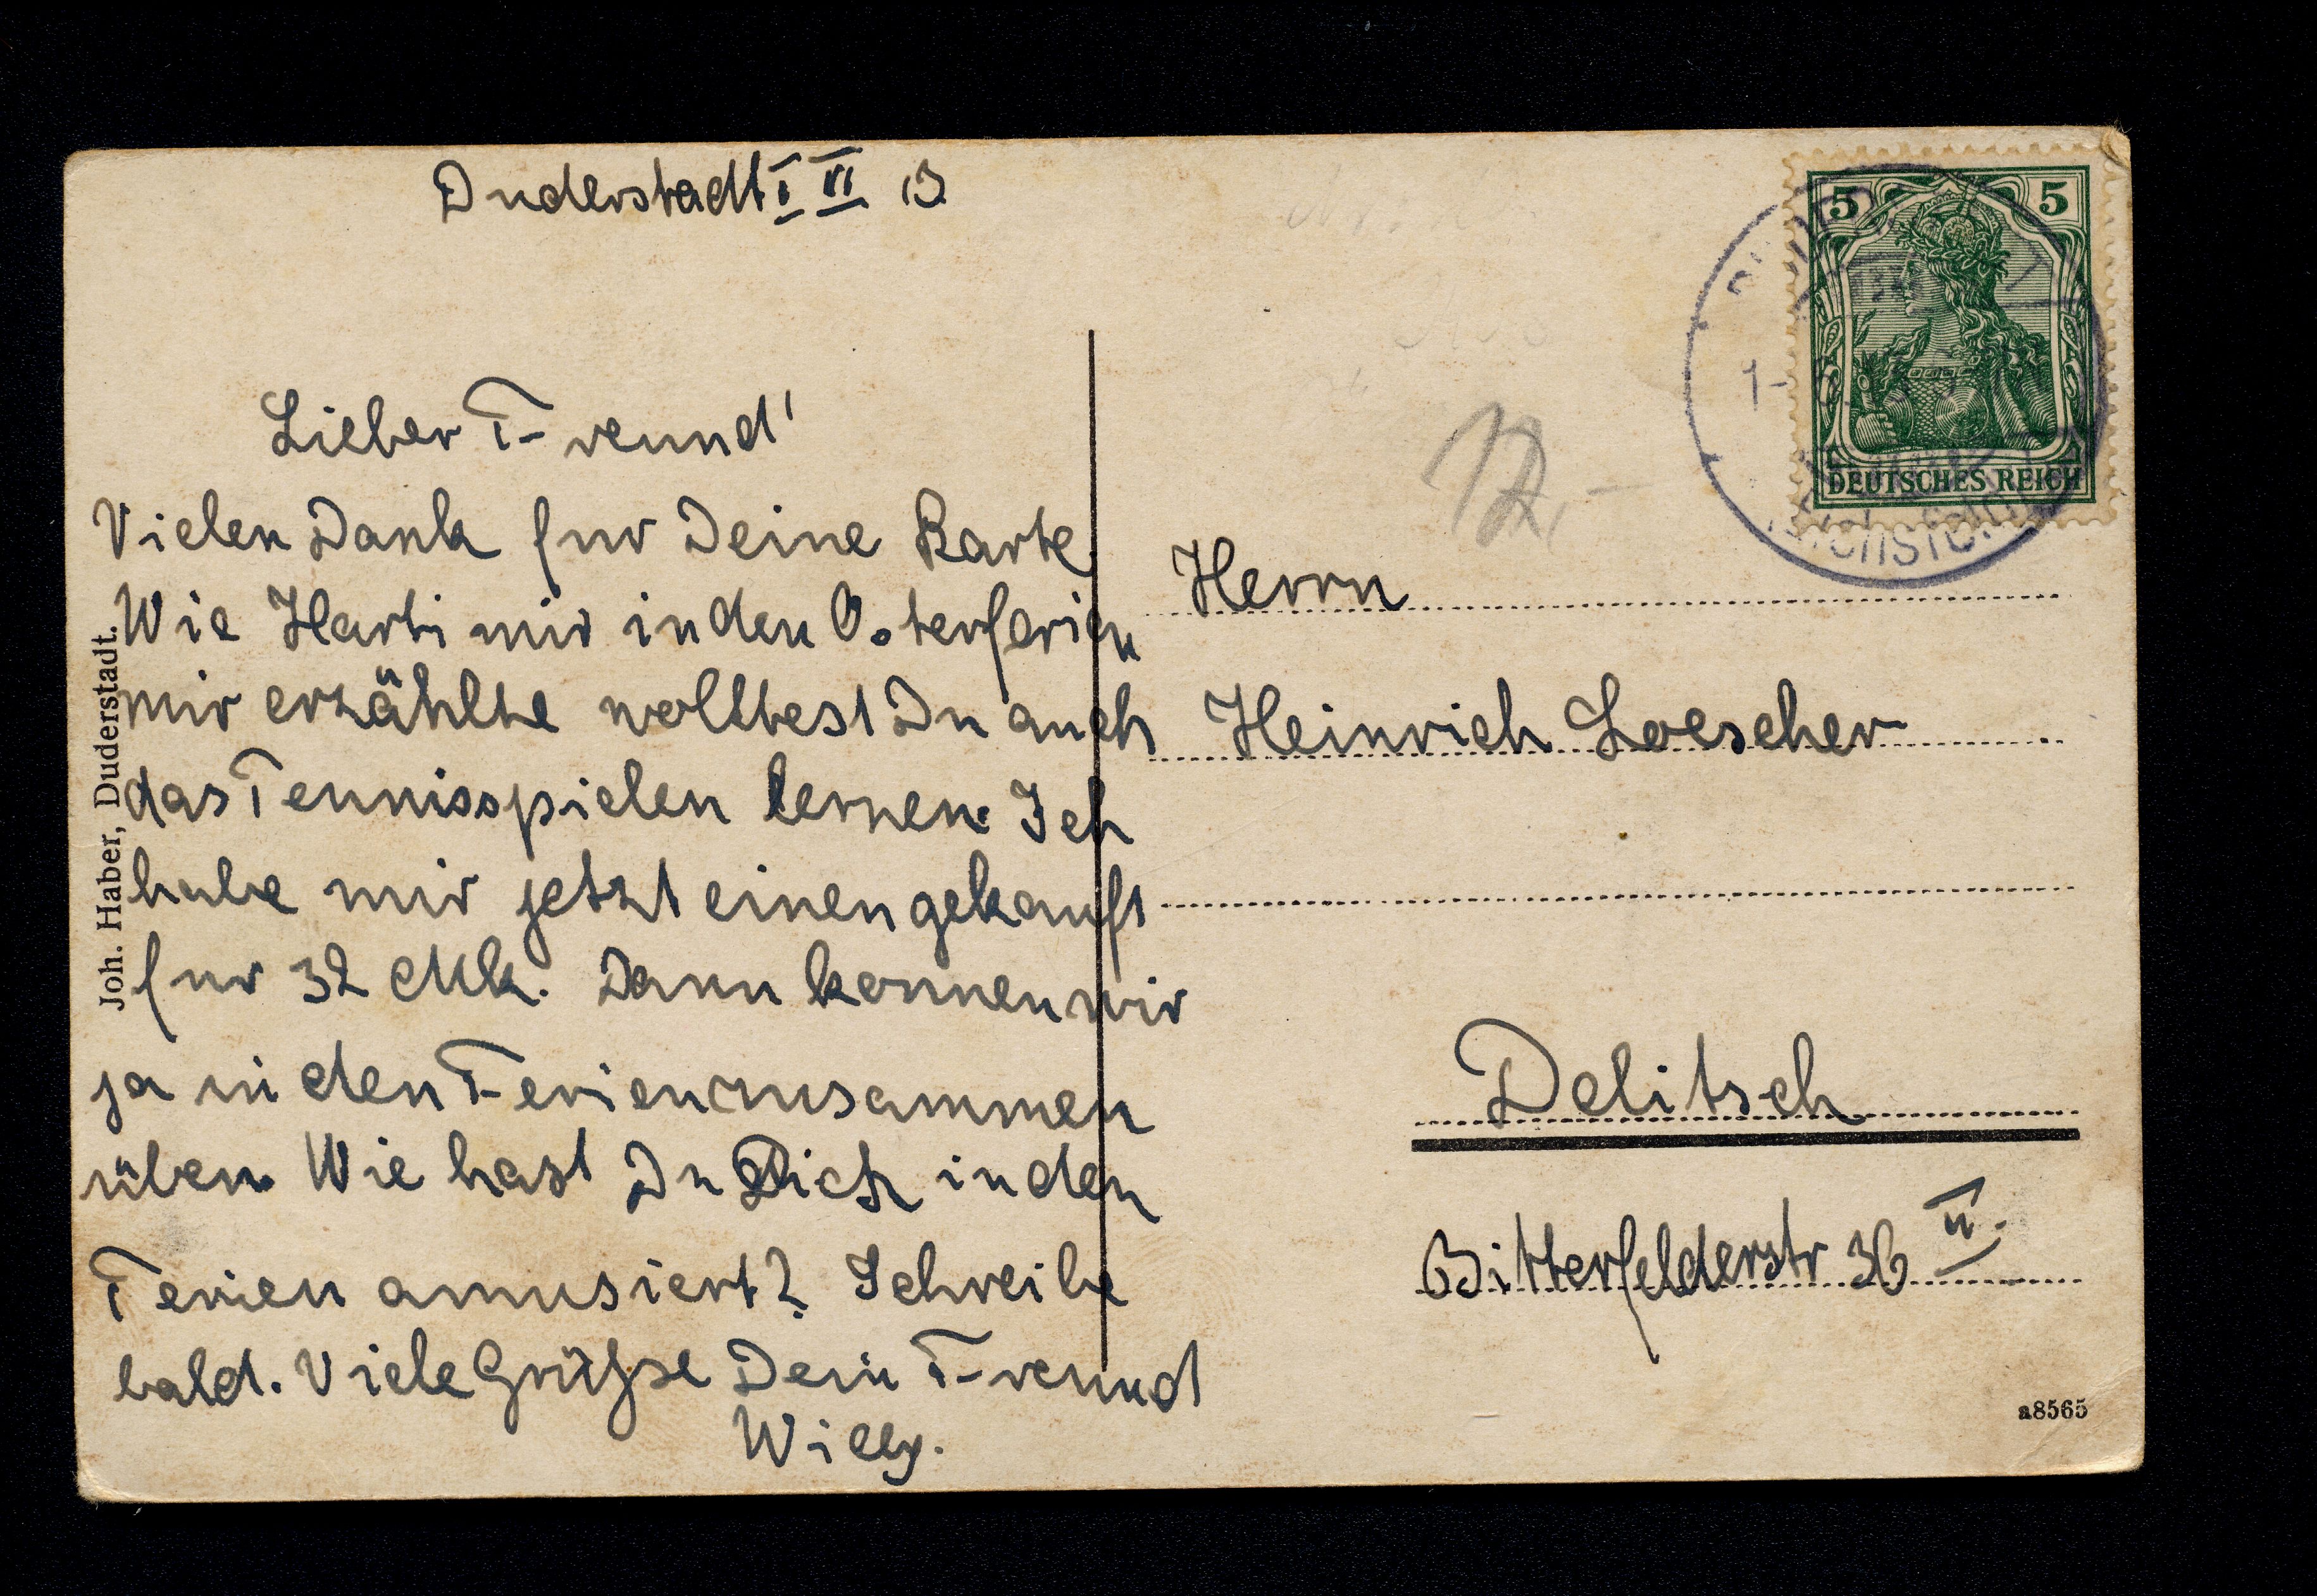 Duderstadt I VI 13
Lieber Freund!
Vielen Dank fur Deine Karte
Wie Harti mir in den Osterferien
mir erzählte wolltest Du auch
das Tennisspielen lernen. Ich
habe mir jetzt einen gekauft
fur 32 Mk. Dann konnen wir
ja in den Ferien zusammen
üben. Wie hast Du Dich in den
Ferien amusiert? Schreibe
bald. Viele Grüße Dein Freund
Willy.
Joh. Haber, Duderstadt.
5 5
DEUTSCHES REICH
12,-
Herrn
Heinrich Loescher
Delitsch
Bitterfelderstr 36 II.
a8565